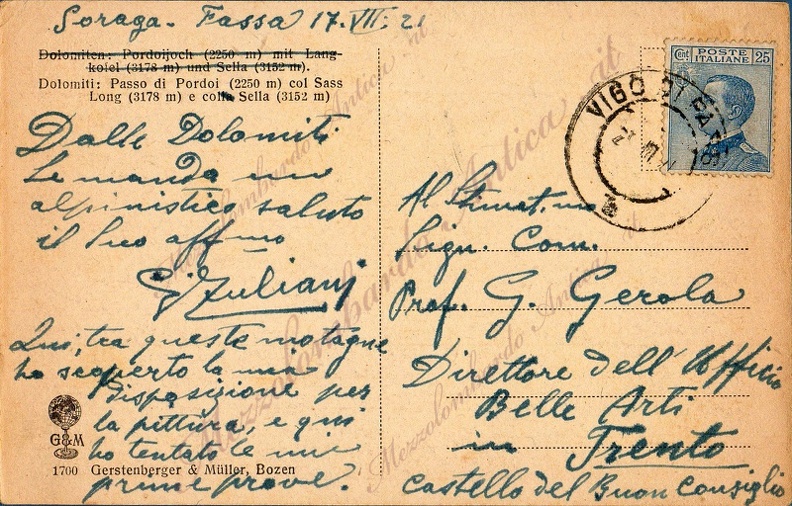 Soraga - Fassa 17.VII.21
Dolomiten: Pordoijoch (2250 m) mit Lang-
kofel (3178 m) und Sella (3152 m).
Dolomiti: Passo di Pordoi (2250 m) col Sass
Long (3178 m) e colla Sella (3152 m)
Dalle Dolomiti
Le manda un
alpinistico saluto
il Suo aff.mo
Giuliani
Qui, tra queste motagne
ho scoperto la mia
disposizione per
la pittura, e qui
ho tentato le mie
prime prove.
G&M
1700 Gerstenberger & Müller, Bozen
Cent. POSTE ITALIANE 25
VIGO DI FASSA
Al Stimat.mo
Sign. Com.
Prof. G. Gerola
Direttore dell'Ufficio
Belle Arti
in Trento
Castello del Buon Consiglio
Mezzolombardo Antica it
Mezzolombardo Antica it
Mezzolombardo Antica it